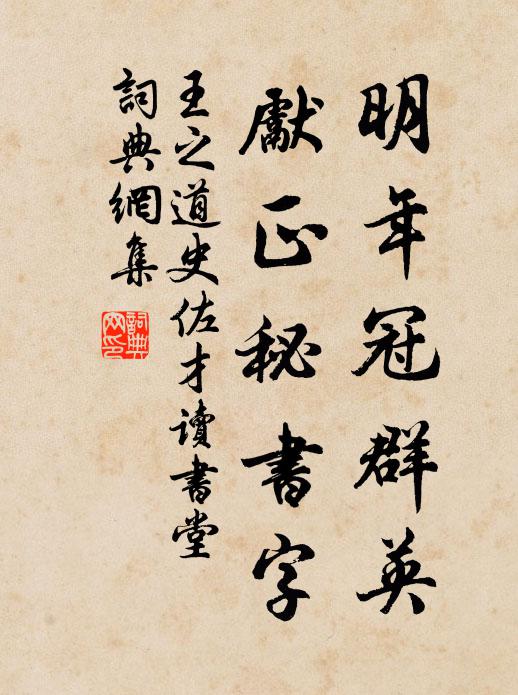 明年冠群英
獻正秘書字
王之道史佐才讀書堂
詞典網集
詞典网印